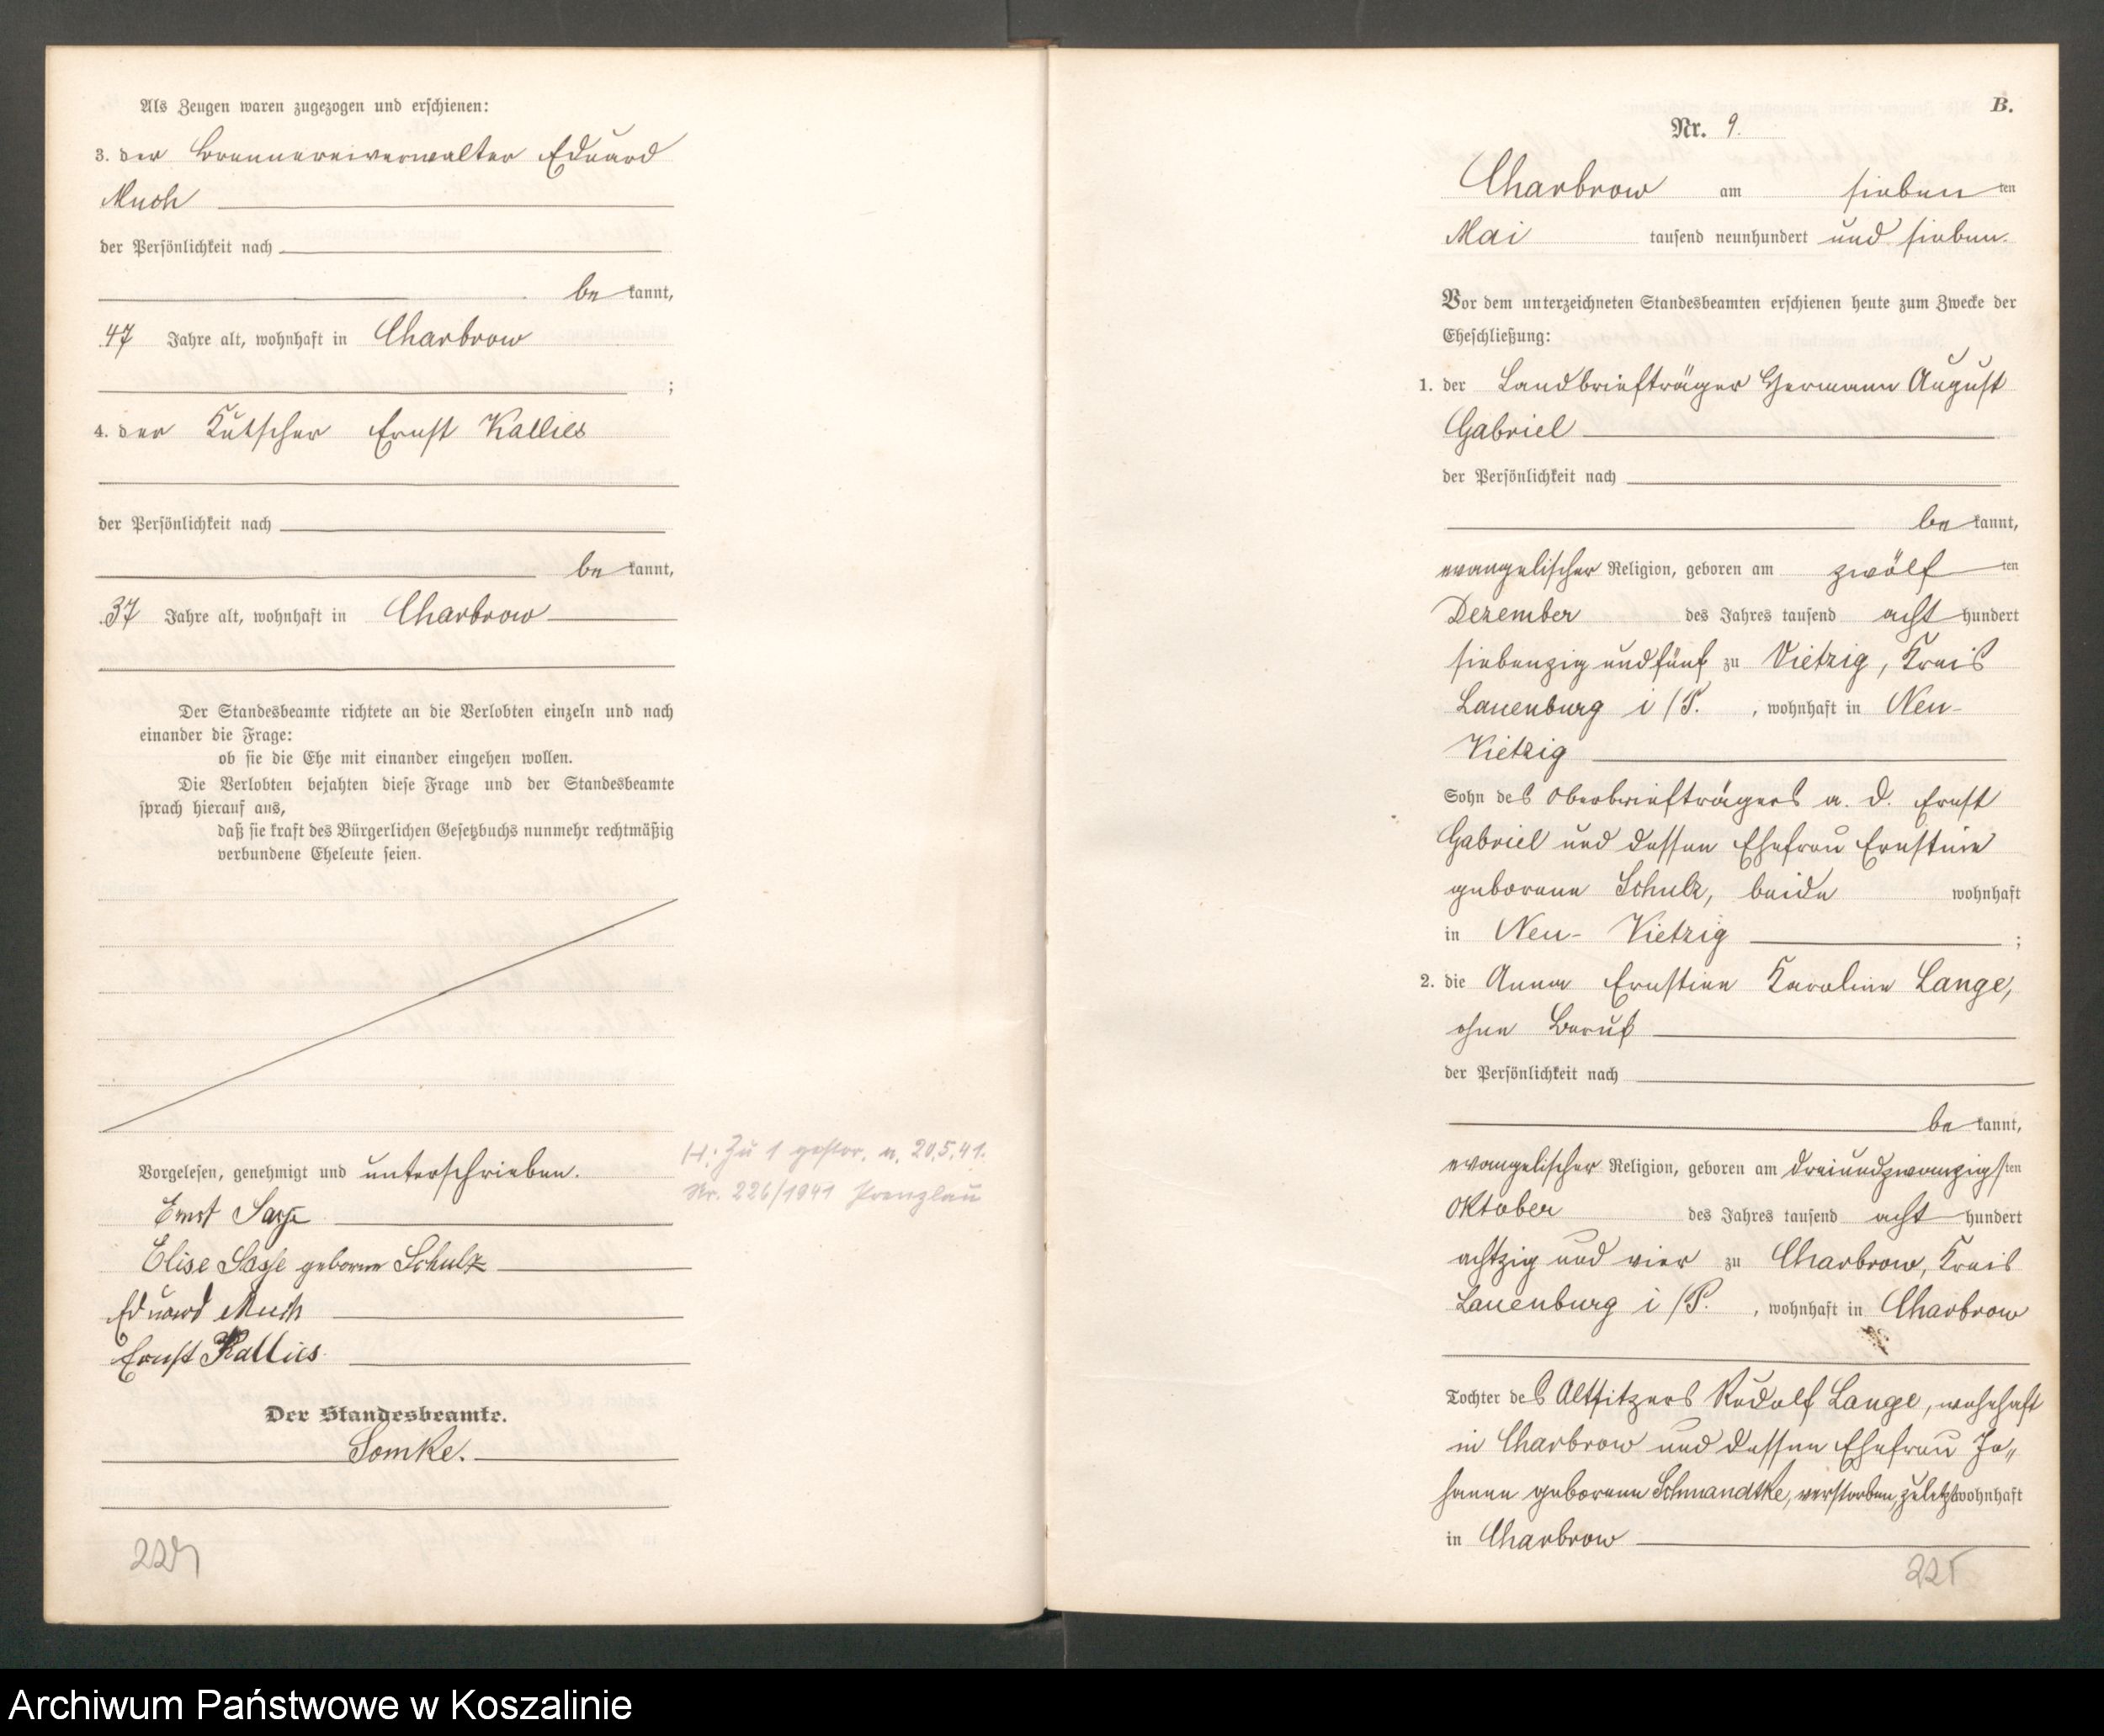 Als Zeugen waren zugezogen und erschienen:
3. der Brennereiverwalter Eduard
Much
der Persönlichkeit nach
be kannt,
47 Jahre alt, wohnhaft in Charbrow
;
4. der Kutscher Ernst Kallies
der Persönlichkeit nach
be kannt,
37 Jahre alt, wohnhaft in Charbrow
Der Standesbeamte richtete an die Verlobten einzeln und nach
einander die Frage:
ob sie die Ehe mit einander eingehen wollen.
Die Verlobten bejahten diese Frage und der Standesbeamte
sprach hierauf aus,
daß sie kraft des Bürgerlichen Gesetzbuchs nunmehr rechtmäßig
verbundene Eheleute seien.
Vorgelesen, genehmigt und unterschrieben.
Ernst Sasse
Elise Sasse geborene Schulz
Eduard Much
Ernst Kallies
Der Standesbeamte.
Somke.
H: Zu 1 gestor. n. 20.5.41.
Nr. 226/1941 Prenzlau
B.
Nr. 9.
Charbrow am sieben ten
Mai tausend neunhundert und sieben.
Vor dem unterzeichneten Standesbeamten erschienen heute zum Zwecke der
Eheschließung:
1. der Landbriefträger Hermann August
Gabriel
der Persönlichkeit nach
be kannt,
evangelischer Religion, geboren am zwölf ten
Dezember des Jahres tausend acht hundert
siebenzig und fünf zu Vietzig, Kreis
Lauenburg i/P. , wohnhaft in Neu-
Vietzig
Sohn des Oberbriefträgers a. D. Ernst
Gabriel und dessen Ehefrau Ernstine
geborene Schulz, beide wohnhaft
in Neu- Vietzig ;
2. die Anna Ernstine Karoline Lange,
ohne Beruf
der Persönlichkeit nach
be kannt,
evangelischer Religion, geboren am dreiundzwanzigsten
Oktober des Jahres tausend acht hundert
achtzig und vier zu Charbrow, Kreis
Lauenburg i/P. , wohnhaft in Charbrow
Tochter des Altsitzers Rudolf Lange, wohnhaft
in Charbrow und dessen Ehefrau Jo„
hanne geborene Schmandtke, verstorben, zuletzt wohnhaft
in Charbrow
225
Archiwum Państwowe w Koszalinie